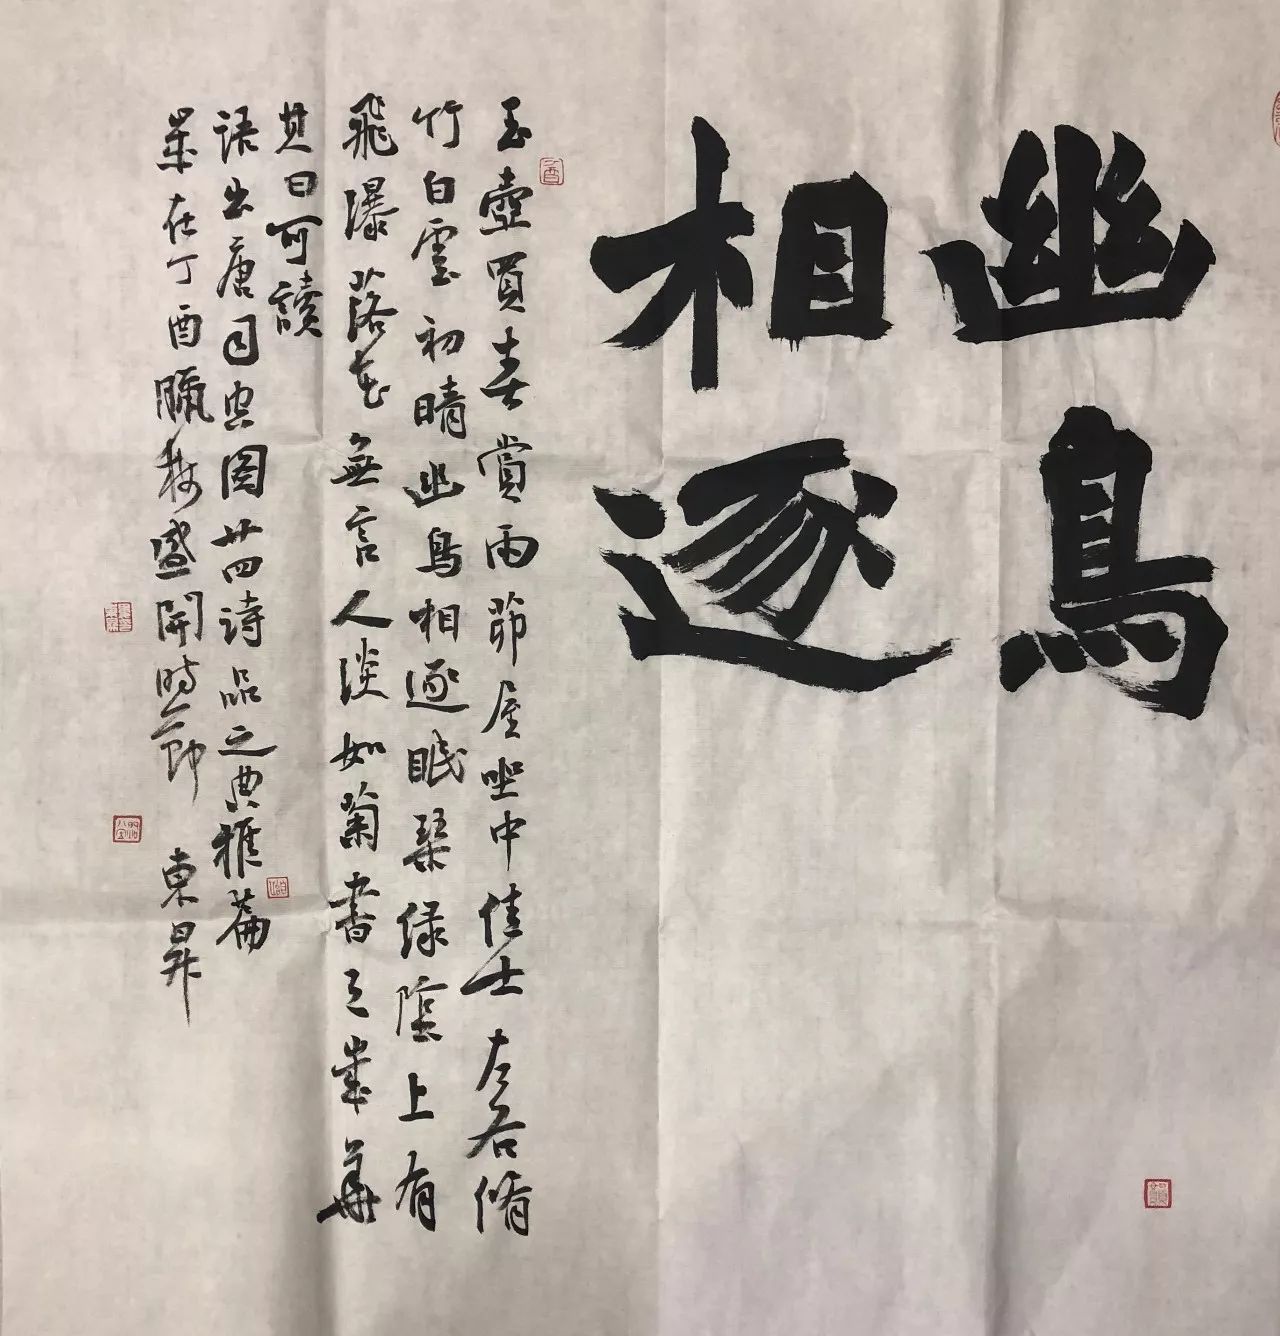 幽鳥
相逐
玉壺買春賞雨茆屋坐中佳士左右脩
竹白雲初晴幽鳥相逐眠琹緑陰上有
飛瀑落花無言人淡如菊書之歲華
其曰可讀
語出唐司空圖廿四詩品之典雅篇
歲在丁酉臘梅盛開時節 東昇